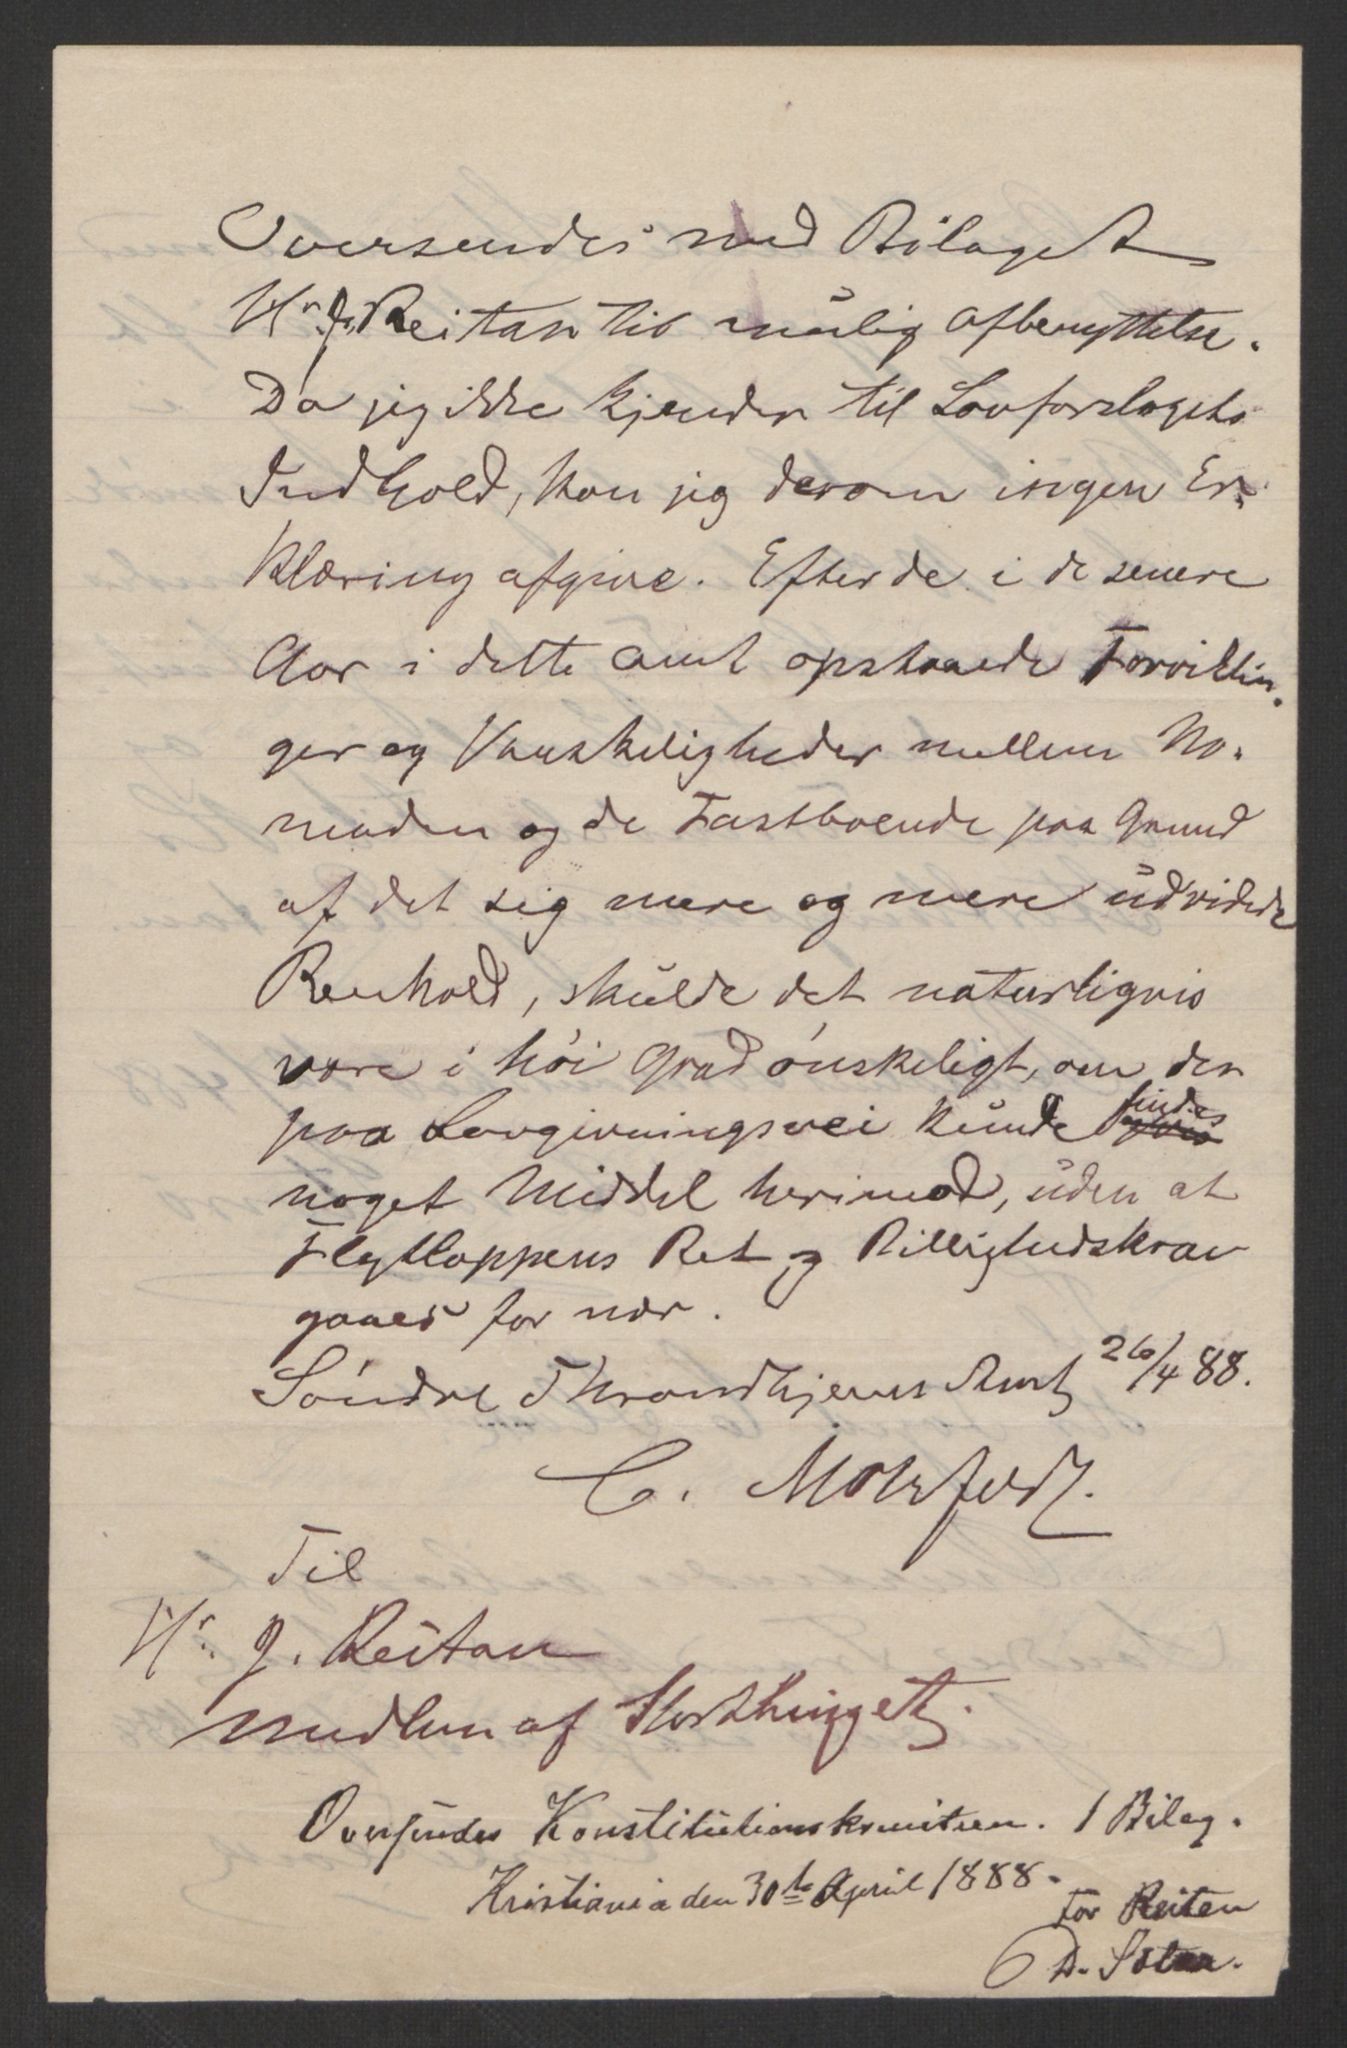 Oversendes med Bilaget
Hr. J. Reitan til mulig Afbenyttelse.
Da jeg ikke kjender til Lovforslagets
Indhold, kan jeg derom ingen Er-
klæring afgive. Efter de i de senere
Aar i dette Amt opstaaede Forviklin-
ger og Vanskeligheder mellem No-
maden og de Fastboende paa Grund
af det sig mere og mere udvidede
Renhold, skulde det naturligvis
være i høi Grad ønskeligt, om der
paa Lovgivningsvei kunde findes
noget Middel herimod, uden at
Flytlappens Ret og Billighedskrav
gaaes for nær.
Søndre Throndhjems Amt 26/4 88.
C. Motzfeldt.
Til
Hr. J. Reitan
Medlem af Storthinget.
Oversendes Konstitutionskomiteen. 1 Bilag.
Kristiania den 30te April 1888.
For Reiten